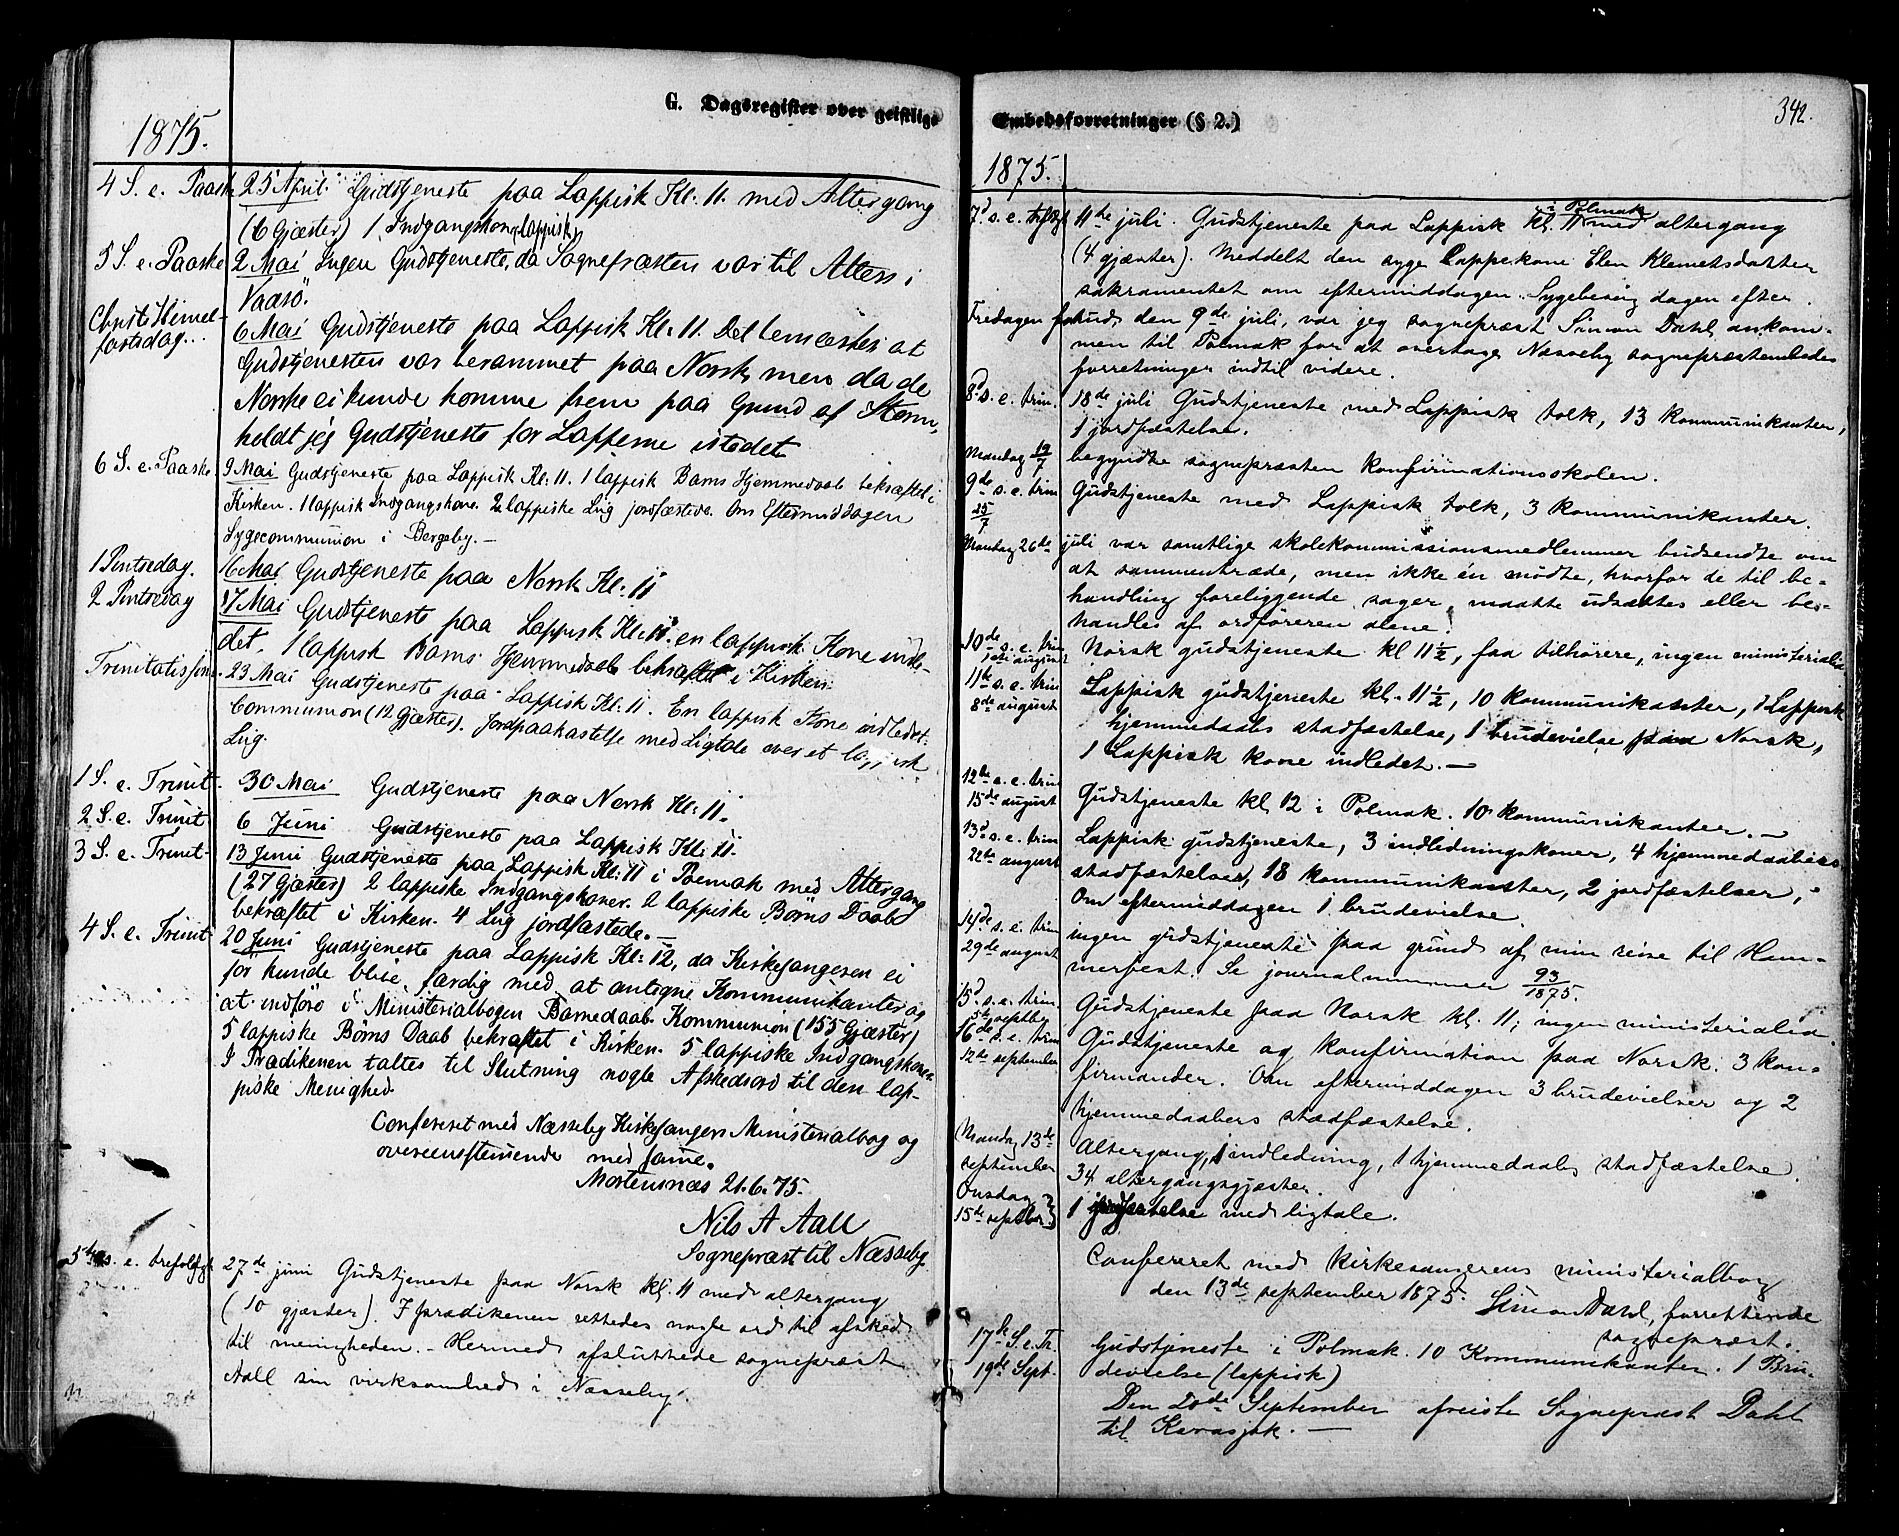 G. Dagsregister over geistlige
1875.
4 S. e. Paaske 25 April. Gudstjeneste paa Lappisk Kl: 11. med Altergang
(6 Gjæster) 1 Indgangskone (lappisk)
5 S. e. Paaske 2 Mai Ingen Gudstjeneste, da Sognepræsten var til Alters i
Vadsö.
Christi Himel-
fartsdag... 6 Mai Gudstjeneste paa Lappisk Kl: 11. Det bemærkes at
Gudstjenesten var berammet paa Norsk, men da de
Norske ei kunde komme frem paa Grund af Storm,
holdt jeg Gudstjeneste for Lapperne istedet
6 S. e. Paaske 9 Mai Gudstjeneste paa Lappisk Kl: 11. 1 lappisk Barns Hjemmedaab bekræftet i
Kirken. 1 lappisk Indgangskone. 2 lappiske Lig jordfæstede. Om Eftermiddagen
Sygecommunion i Bergeby. —
1 Pintsedag. 16 Mai Gudstjeneste paa Norsk Kl: 11
2 Pintsedag 17 Mai Gudstjeneste paa Lappisk Kl: 11. en lappisk Kone indle-
det. 1 lappisk Barns Hjemmedaab bekræftet i Kirken.
Trinitatis 23 Mai Gudstjeneste paa Lappisk Kl: 11. En lappisk Kone indledet.
Communion (12 Gjæster). Jordpaakastelse med Ligtale over et lappisk
Lig.
1 S. e. Trinit. 30 Mai Gudstjeneste paa Norsk Kl: 11.
2 S. e. Trinit. 6 Juni Gudstjeneste paa Lappisk Kl: 11.
3 S. e. Trinit. 13 Juni Gudstjeneste paa Lappisk Kl: 11 i Polmak med Altergang
(27 Gjæster) 2 lappiske Indgangskoner. 2 lappiske Børns Daab
bekræftet i Kirken. 4 Lig jordfæstede. —
4 S. e. Trinit. 20 Juni Gudstjeneste paa Lappisk Kl: 12, da Kirkesangeren ei
for kunde blive færdig med at antegne Kommunikanter og
at indføre i Ministerialbogen Barnedaab. Kommunion (155 Gjæster)
5 lappiske Børns Daab bekræftet i Kirken. 5 lappiske Indgangskoner
I Prædikenen taltes til Slutning nogle Afskedsord til den lap-
piske Menighed.
Confereret med Næsseby Kirkesangers Ministerialbog og
overeensstemmende med samme.
Mortensnæs 21.6.75.
Nils A Aall
Sognepræst til Næsseby.
5te s. e. trefoldigh. 27de juni Gudstjeneste paa Norsk kl. 11 med altergang
(10 gjæster). I prædikenen rettedes nogle ord til afsked
til menigheden. - Hermed afsluttede sognepræst
Aall sin virksomhed i Næsseby.
Embedsforretninger (§ 2.)
342.
1875.
7d s. e. trftgh 11te juli. Gudstjeneste paa Lappisk kl. 11 i Polmak med altergang
(4 gjæster). Meddelt den syge Lappekone Elen Klemetsdatter
sakramentet om eftermiddagen. Sygebesøg dagen efter.
Fredagen forud, den 9de juli, var jeg sognepræst Simon Dahl ankom-
men til Polmak for at overtage Næsseby sognepræstembedes
forretninger indtil videre.
8d s. e. trin. 18de juli Gudstjeneste med Lappisk tolk, 13 kommunikanter,
1 jordfæstelse.
Mandag 19/7 begyndte sognepræsten konfirmationsskolen.
9de s. e. trin 25/7 Gudstjeneste med Lappisk tolk, 3 kommunikanter.
Mandag 26de juli var samtlige skolekommissionsmedlemmer budsendte om
at sammentræde, men ikke én mødte, hvorfor de til be-
handling foreliggende sager maatte udsættes eller be-
handles af ordføreren alene.
10de s. e. trin
1ste august Norsk gudstjeneste kl 11 1/2, faa tilhørere, ingen ministerialia
11te s. e. trin
8de august Lappisk gudstjeneste kl. 11 1/2, 10 kommunikanter, 1 Lappisk
hjemmedaabs stadfæstelse, 1 brudevielse paa Norsk,
1 Lappisk kone indledet. —
12te s. e. trin
15de august Gudstjeneste kl 12 i Polmak. 10 kommunikanter. —
13d s. e. trin
22de august Lappisk gudstjeneste, 3 indledningskoner, 4 hjemmedaabers
stadfæstelser, 18 kommunikanter, 2 jordfæstelser,
Om eftermiddagen 1 brudevielse.
14de s. e. trin
29de august ingen gudstjeneste paa grund af min reise til Ham-
merfest. Se journalnummer 93/1875.
15d s. e. trin.
5te septbr Gudstjeneste paa Norsk kl. 11; ingen ministerialia.
16de s. e. trin
12te september Gudstjeneste og konfirmation paa Norsk. 3 kon-
firmander. Om eftermiddagen 3 brudevielser og 2
hjemmedaabers stadfæstelse.
Mandag 13de
september Altergang, 1 indledning, 1 hjemmedaabs stadfæstelse.
34 altergangsgjæster.
Onsdag
15de septber 1 jordfæstelse med ligtale.
Confereret med kirkesangerens ministerialbog
den 13de september 1875. Simon Dahl, forrettende
sognepræst.
17de S. e. Tr.
19de Sept. Gudstjeneste i Polmak. 10 Kommunikanter. 1 Bru-
devielse (lappisk)
Den 20de September afreiste Sognepræst Dahl
til Karasjok. —